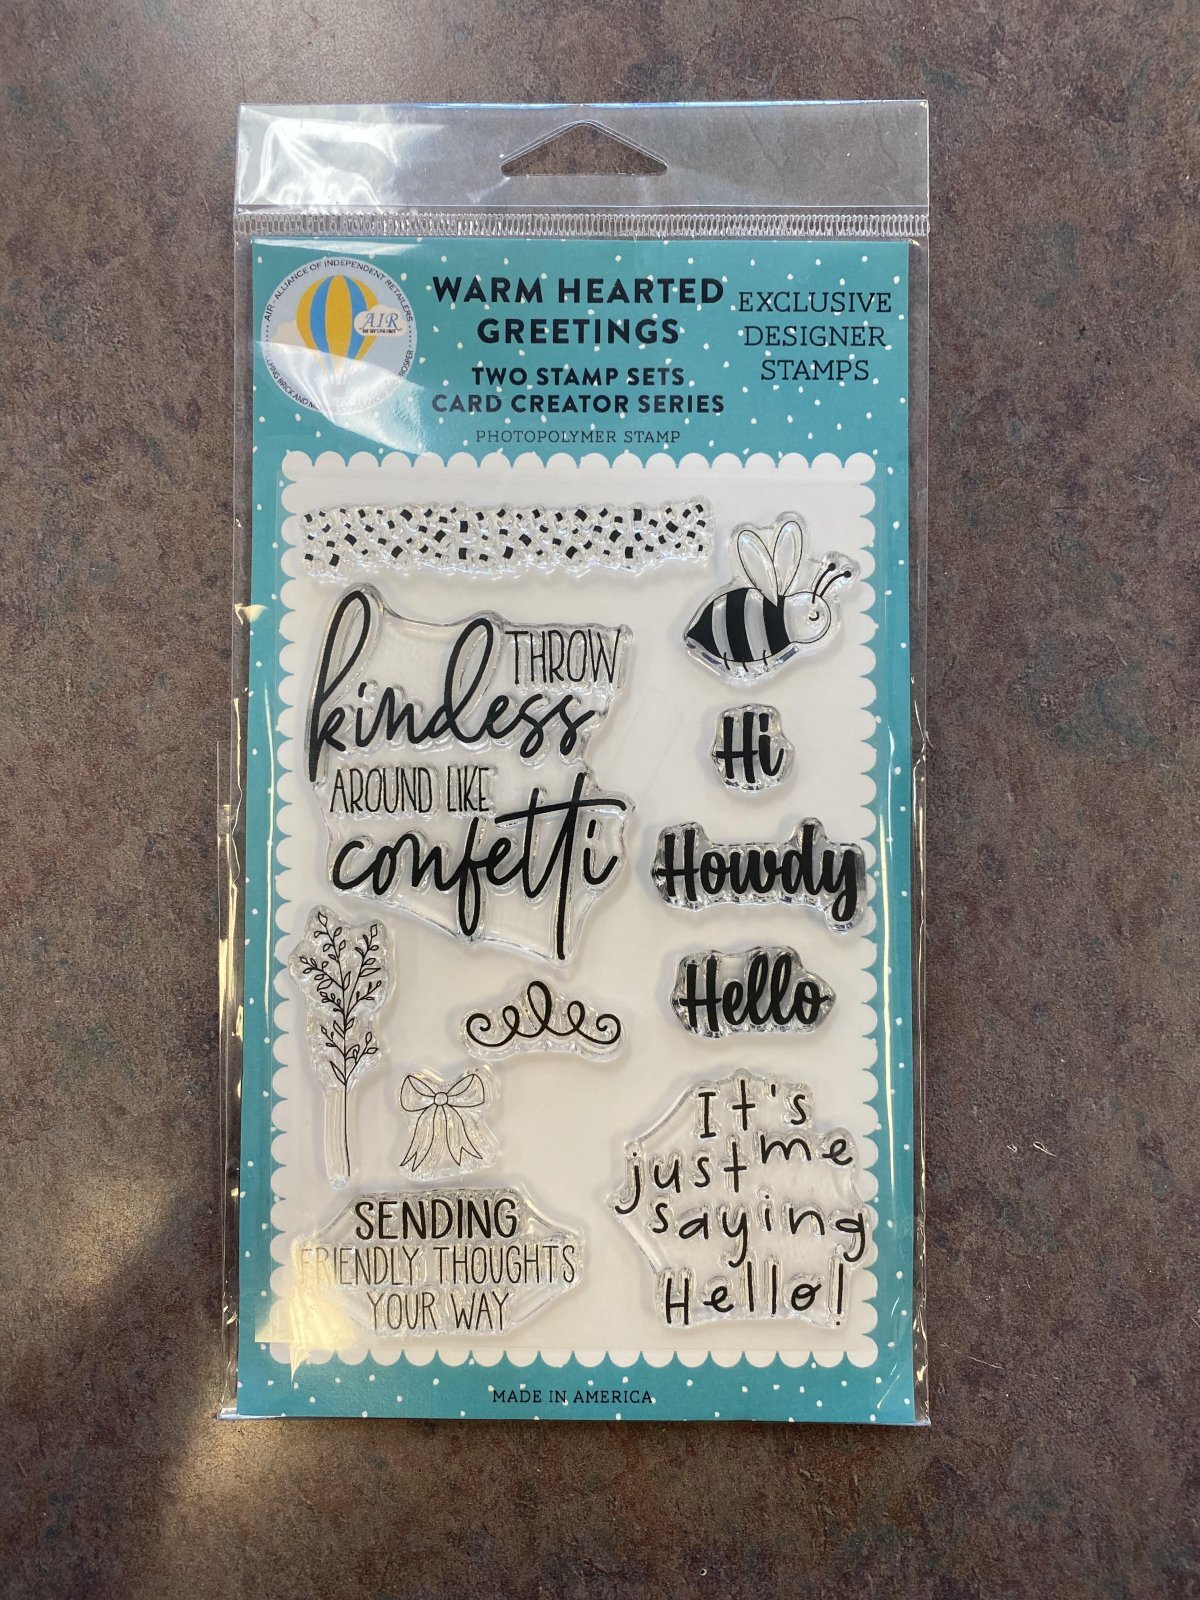 AIR - ALLIANCE OF INDEPENDENT RETAILERS
AIR
THE SKY'S THE LIMIT
BRICK AND
WARM HEARTED
GREETINGS
TWO STAMP SETS
CARD CREATOR SERIES
PHOTOPOLYMER STAMP
EXCLUSIVE
DESIGNER
STAMPS
THROW
kindess
AROUND LIKE
confetti
Hi
Howdy
Hello
It's
just me
saying
Hello!
SENDING
FRIENDLY THOUGHTS
YOUR WAY
MADE IN AMERICA